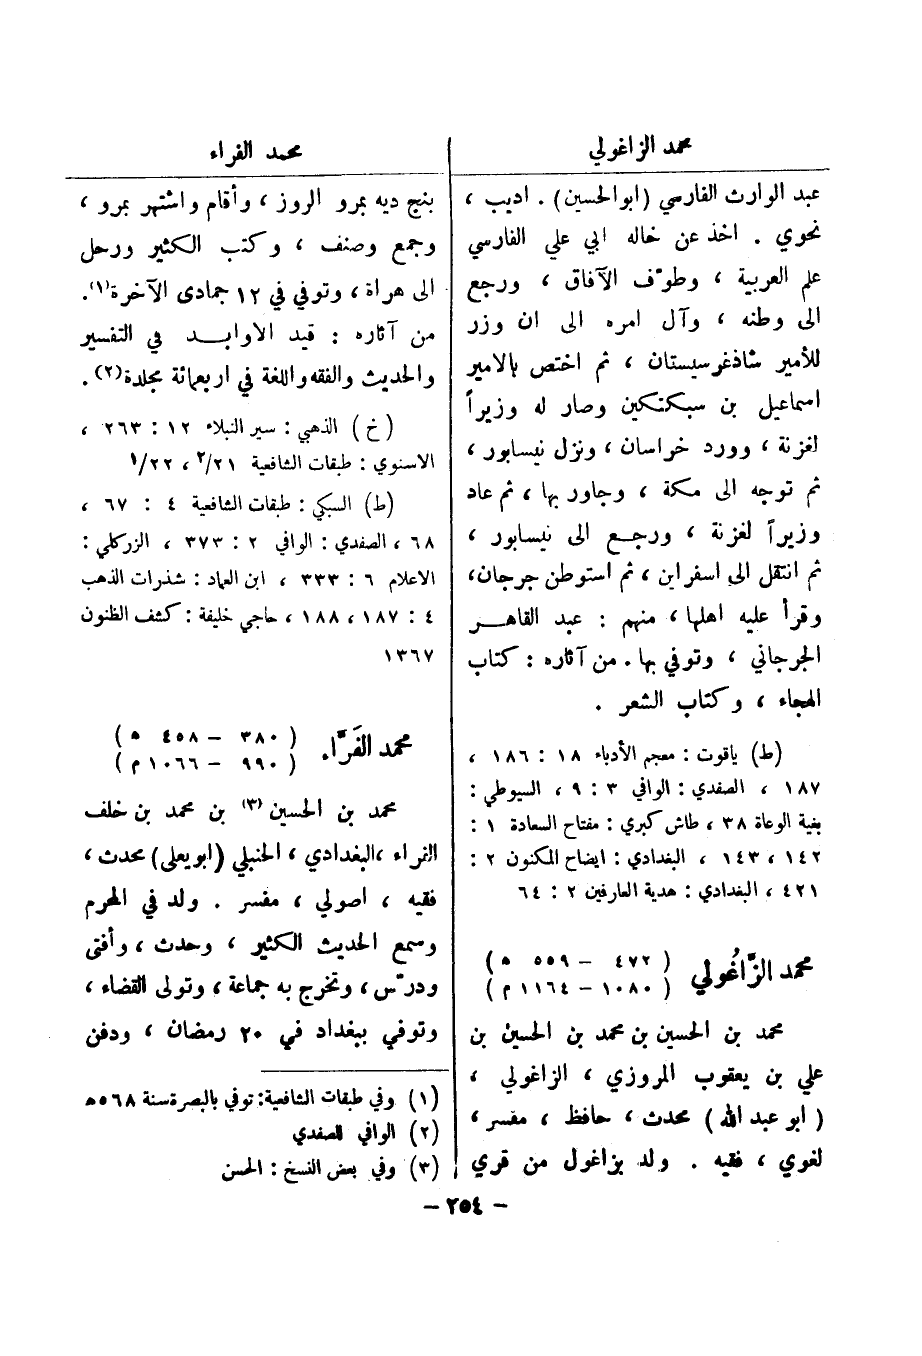 محمد الزاغولي
عبد الوارث الفارسي (ابو الحسين) . اديب ،
نحوي . اخذ عن خاله ابي علي الفارسي
علم العربية ، وطوّف الآفاق ، ورجع
الى وطنه ، وآل امره الى ان وزر
للأمير شاذغرسيستان ، ثم اختص بالامير
اسماعيل بن سبكتكين وصار له وزيراً
لغزنة ، وورد خراسان ، ونزل نيسابور ،
ثم توجه الى مكة ، وجاور بها ، ثم عاد
وزيراً لغزنة ، ورجع الى نيسابور ،
ثم انتقل الى اسفراين ، ثم استوطن جرجان،
وقرأ عليه اهلها ، منهم : عبد القاهر
الجرجاني ، وتوفي بها . من آثاره : كتاب
الهجاء ، وكتاب الشعر .
(ط) ياقوت : معجم الأدباء ١٨ : ١٨٦ ،
١٨٧ ، الصفدي : الوافي ٣ : ٩ ، السيوطي :
بغية الوعاة ٣٨ ، طاش كبري : مفتاح السعادة ١ :
١٤٢ ، ١٤٣ ، البغدادي : ايضاح المكنون ٢ :
٤٢١ ، البغدادي : هدية العارفين ٢ : ٦٤
محمد الزَّاغُولي (٤٧٢ – ٥٥٩ ه)
(١٠٨٠ – ١١٦٤ م)
محمد بن الحسين بن محمد بن الحسين بن
علي بن يعقوب المروزي ، الزاغولي ،
( ابو عبد الله ) محدث ، حافظ ، مفسر ،
لغوي ، فقيه . ولد بزاغول من قرى
محمد الفراء
بنج ديه بمرو الروز ، وأقام واشتهر بمرو ،
وجمع وصنف ، وكتب الكثير ورحل
الى هراة ، وتوفي في ١٢ جمادى الآخرة(١).
من آثاره : قيد الاوابد في التفسير
والحديث والفقه واللغة في اربعمائة مجلدة(٢).
(خ) الذهبي : سير النبلاء ١٢ : ٢٦٣ ،
الاسنوي : طبقات الشافعية ٢/٢١ ، ١/٢٢
(ط) السبكي : طبقات الشافعية ٤ : ٦٧ ،
٦٨ ، الصفدي : الوافي ٢ : ٣٧٣ ، الزركلي :
الاعلام ٦ : ٣٣٣ ، ابن العماد : شذرات الذهب
٤ : ١٨٧ ، ١٨٨ ، حاجي خليفة : كشف الظنون
١٣٦٧
محمد الفَرَّاء (٣٨٠ – ٤٥٨ ه)
(٩٩٠ – ١٠٦٦ م)
محمد بن الحسين (٣) بن محمد بن خلف
الفراء ،البغدادي ، الحنبلي (ابو يعلى) محدث ،
فقيه ، اصولي ، مفسر . ولد في المحرم
وسمع الحديث الكثير ، وحدث ، وأفتى
ودرّس ، وتخرج به جماعة ، وتولى القضاء ،
وتوفي ببغداد في ٢٠ رمضان ، ودفن
(١) وفي طبقات الشافعية: توفي بالبصرة سنة ٥٦٨ه
(٢) الوافي للصفدي
(٣) وفي بعض النسخ : الحسن
– ٢٥٤ –